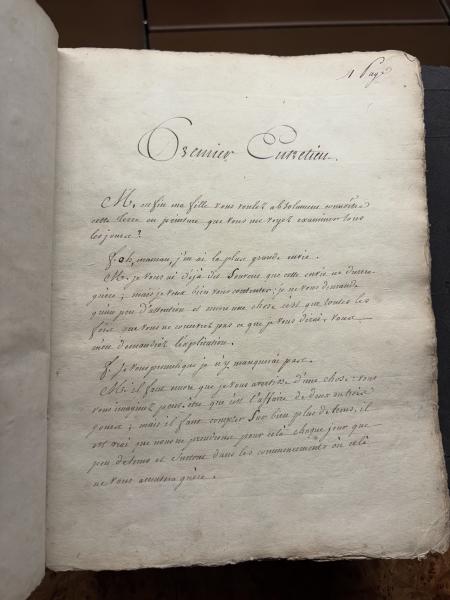 1 Page
Premier Entretien.
M. enfin ma fille vous voulez absolument connaître
cette terre en peinture que vous me voyez examiner tous
les jours ?
f. oh, maman, j'en ai la plus grande envie.
M. je vous ai déjà dis souvent que cette envie ne durera
guère ; mais je veux bien vous contenter : je ne vous demande
qu'un peu d'attention et encore une chose c'est que toutes les
fois que vous ne concevrez pas ce que je vous dirai, vous
m'en demandiez l'explication.
f. je vous promets que je n'y manquerai pas.
M. il faut encore que je vous avertisse d'une chose : vous
vous imaginez peut être que c'est l'affaire de deux ou trois
jours ; mais il faut compter sur bien plus de tems, il
est vrai que nous ne prendrons pour cela chaque jour que
peu de tems et surtout dans les commencements où cela
ne vous amusera guère.